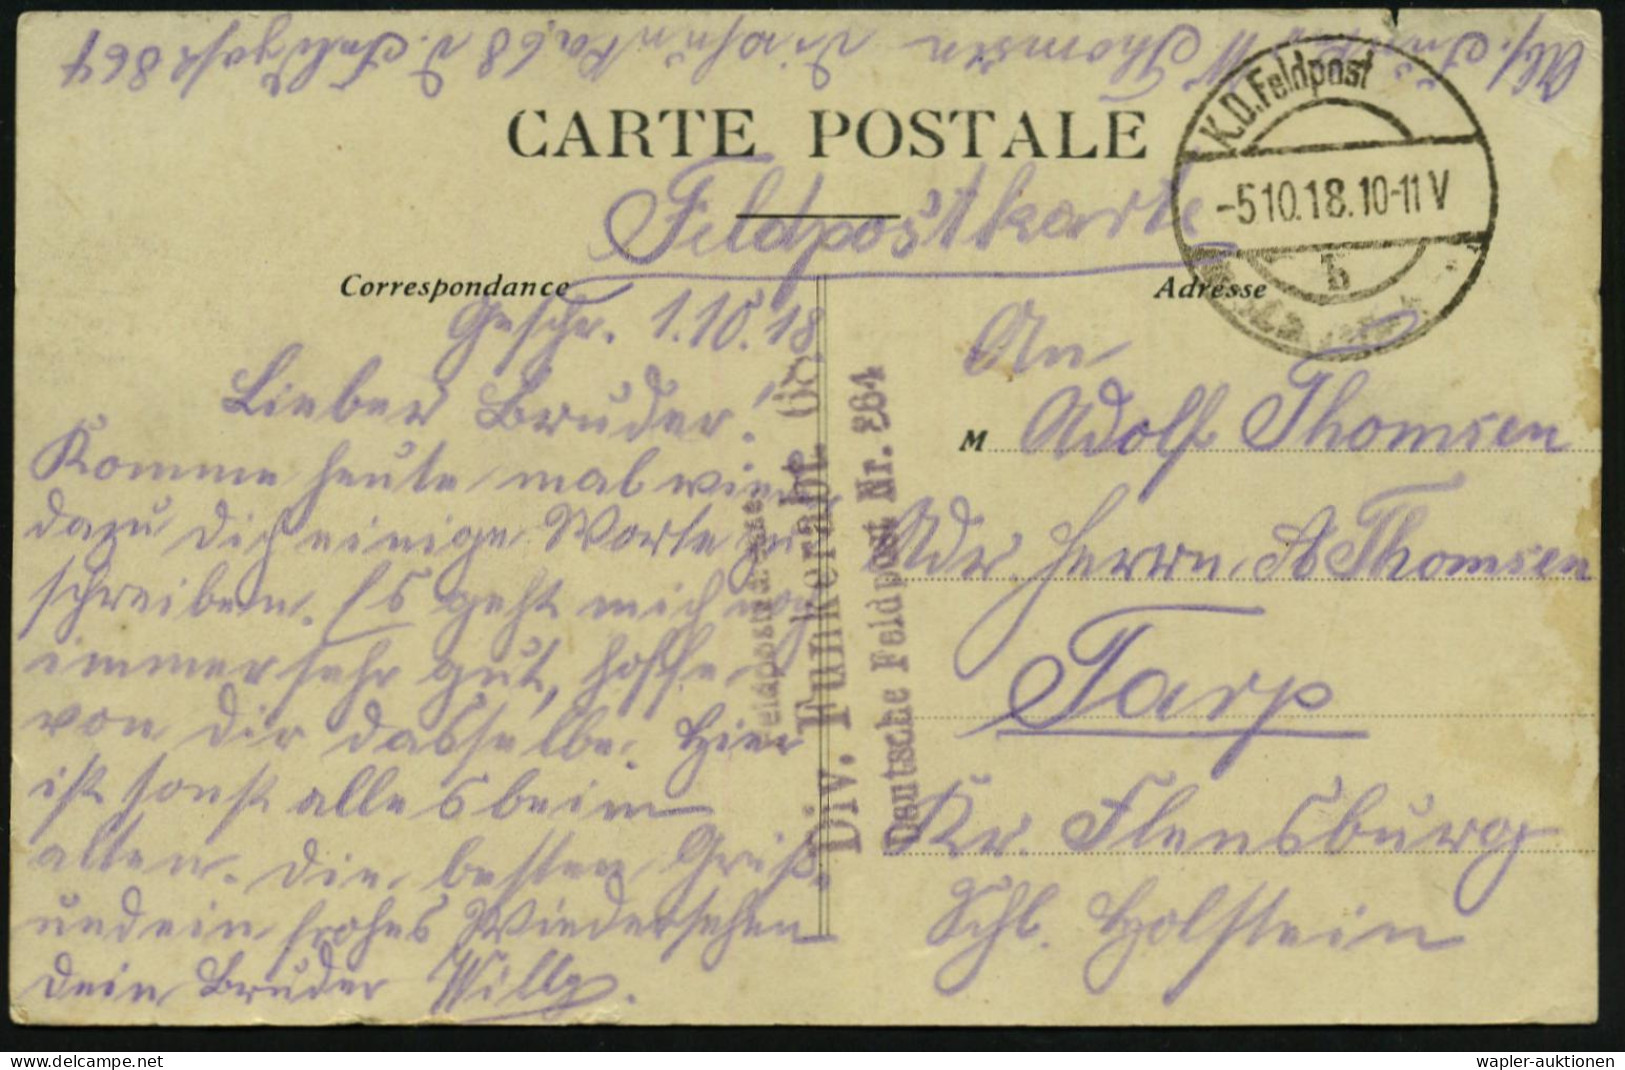 Abs. Funker W Thomsen Div. Funka. 68 D. Feldpost 864
CARTE POSTALE
Feldpostkarte
K.D.Feldpost
-5 10.18. 10-11 V
b
Correspondance
Adresse
Geschr. 1.10.18.
Lieber Bruder!
Komme heute mal wieder
dazu dir einige Worte zu
schreiben. Es geht mich noch
immer sehr gut, hoffe
von dir dasselbe. Hier
ist sonst alles beim
alten. Die besten Grüße
und ein frohes Wiedersehen
dein Bruder Willy.
Feldpostadresse:
Div. Funkerabt. 68
Deutsche Feldpost Nr. 864
An
M Adolf Thomsen
Adr. Herrn A Thomsen
Tarp
Kr. Flensburg
Schl. Holstein
delcampe.net
wapler-auktionen